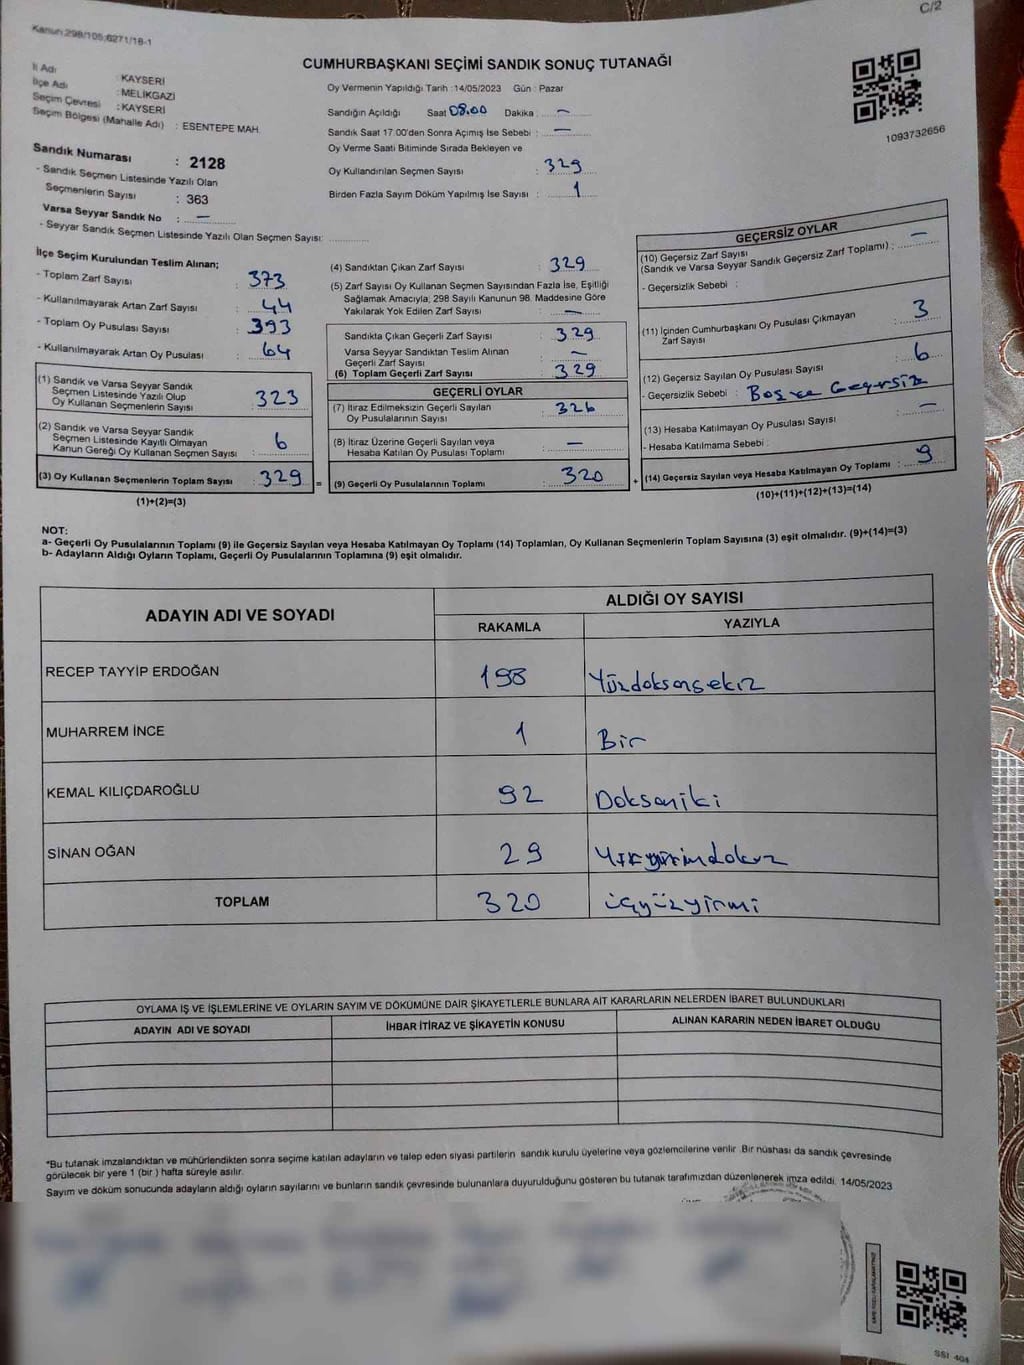 C/2
Kanun:298/105;6271/18-1
CUMHURBAŞKANI SEÇİMİ SANDIK SONUÇ TUTANAĞI
İl Adı : KAYSERİ
İlçe Adı : MELİKGAZİ
Seçim Çevresi : KAYSERİ
Seçim Bölgesi (Mahalle Adı) : ESENTEPE MAH.
Oy Vermenin Yapıldığı Tarih :14/05/2023 Gün : Pazar
Sandığın Açıldığı Saat 08.00 Dakika : —
Sandık Saat 17.00'den Sonra Açımış İse Sebebi : —
Oy Verme Saati Bitiminde Sırada Bekleyen ve
Oy Kullandırılan Seçmen Sayısı : 329
Birden Fazla Sayım Döküm Yapılmış İse Sayısı : 1
1093732656
Sandık Numarası : 2128
- Sandık Seçmen Listesinde Yazılı Olan
Seçmenlerin Sayısı : 363
Varsa Seyyar Sandık No : —
- Seyyar Sandık Seçmen Listesinde Yazılı Olan Seçmen Sayısı:
İlçe Seçim Kurulundan Teslim Alınan;
- Toplam Zarf Sayısı : 373
- Kullanılmayarak Artan Zarf Sayısı : 44
- Toplam Oy Pusulası Sayısı : 393
- Kullanılmayarak Artan Oy Pusulası : 64
(1) Sandık ve Varsa Seyyar Sandık
Seçmen Listesinde Yazılı Olup
Oy Kullanan Seçmenlerin Sayısı : 323
(2) Sandık ve Varsa Seyyar Sandık
Seçmen Listesinde Kayıtlı Olmayan
Kanun Gereği Oy Kullanan Seçmen Sayısı : 6
(3) Oy Kullanan Seçmenlerin Toplam Sayısı : 329 =
(1)+(2)=(3)
(4) Sandıktan Çıkan Zarf Sayısı : 329
(5) Zarf Sayısı Oy Kullanan Seçmen Sayısından Fazla İse, Eşitliği
Sağlamak Amacıyla; 298 Sayılı Kanunun 98. Maddesine Göre
Yakılarak Yok Edilen Zarf Sayısı : —
Sandıkta Çıkan Geçerli Zarf Sayısı : 329
Varsa Seyyar Sandıktan Teslim Alınan
Geçerli Zarf Sayısı : —
(6) Toplam Geçerli Zarf Sayısı : 329
GEÇERLİ OYLAR
(7) İtiraz Edilmeksizin Geçerli Sayılan
Oy Pusulalarının Sayısı : 326
(8) İtiraz Üzerine Geçerli Sayılan veya
Hesaba Katılan Oy Pusulası Toplamı : —
(9) Geçerli Oy Pusulalarının Toplamı : 320 +
GEÇERSİZ OYLAR
(10) Geçersiz Zarf Sayısı
(Sandık ve Varsa Seyyar Sandık Geçersiz Zarf Toplamı) : —
- Geçersizlik Sebebi :
(11) İçinden Cumhurbaşkanı Oy Pusulası Çıkmayan
Zarf Sayısı : 3
(12) Geçersiz Sayılan Oy Pusulası Sayısı : 6
- Geçersizlik Sebebi : Boş ve Geçersiz
(13) Hesaba Katılmayan Oy Pusulası Sayısı : —
- Hesaba Katılmama Sebebi :
(14) Geçersiz Sayılan veya Hesaba Katılmayan Oy Toplamı : 9
(10)+(11)+(12)+(13)=(14)
NOT:
a- Geçerli Oy Pusulalarının Toplamı (9) ile Geçersiz Sayılan veya Hesaba Katılmayan Oy Toplamı (14) Toplamları, Oy Kullanan Seçmenlerin Toplam Sayısına (3) eşit olmalıdır. (9)+(14)=(3)
b- Adayların Aldığı Oyların Toplamı, Geçerli Oy Pusulalarının Toplamına (9) eşit olmalıdır.
ADAYIN ADI VE SOYADI ALDIĞI OY SAYISI
RAKAMLA YAZIYLA
RECEP TAYYİP ERDOĞAN 198 Yüzdoksansekiz
MUHARREM İNCE 1 Bir
KEMAL KILIÇDAROĞLU 92 Doksaniki
SİNAN OĞAN 29
TOPLAM 320 üçyüzyirmi
OYLAMA İŞ VE İŞLEMLERİNE VE OYLARIN SAYIM VE DÖKÜMÜNE DAİR ŞİKAYETLERLE BUNLARA AİT KARARLARIN NELERDEN İBARET BULUNDUKLARI
ADAYIN ADI VE SOYADI İHBAR İTİRAZ VE ŞİKAYETİN KONUSU ALINAN KARARIN NEDEN İBARET OLDUĞU
*Bu tutanak imzalandıktan ve mühürlendikten sonra seçime katılan adayların ve talep eden siyasi partilerin sandık kurulu üyelerine veya gözlemcilerine verilir .Bir nüshası da sandık çevresinde
görülecek bir yere 1 (bir ) hafta süreyle asılır.
Sayım ve döküm sonucunda adayların aldığı oyların sayılarını ve bunların sandık çevresinde bulunanlara duyurulduğunu gösteren bu tutanak tarafımızdan düzenlenerek imza edildi. 14/05/2023